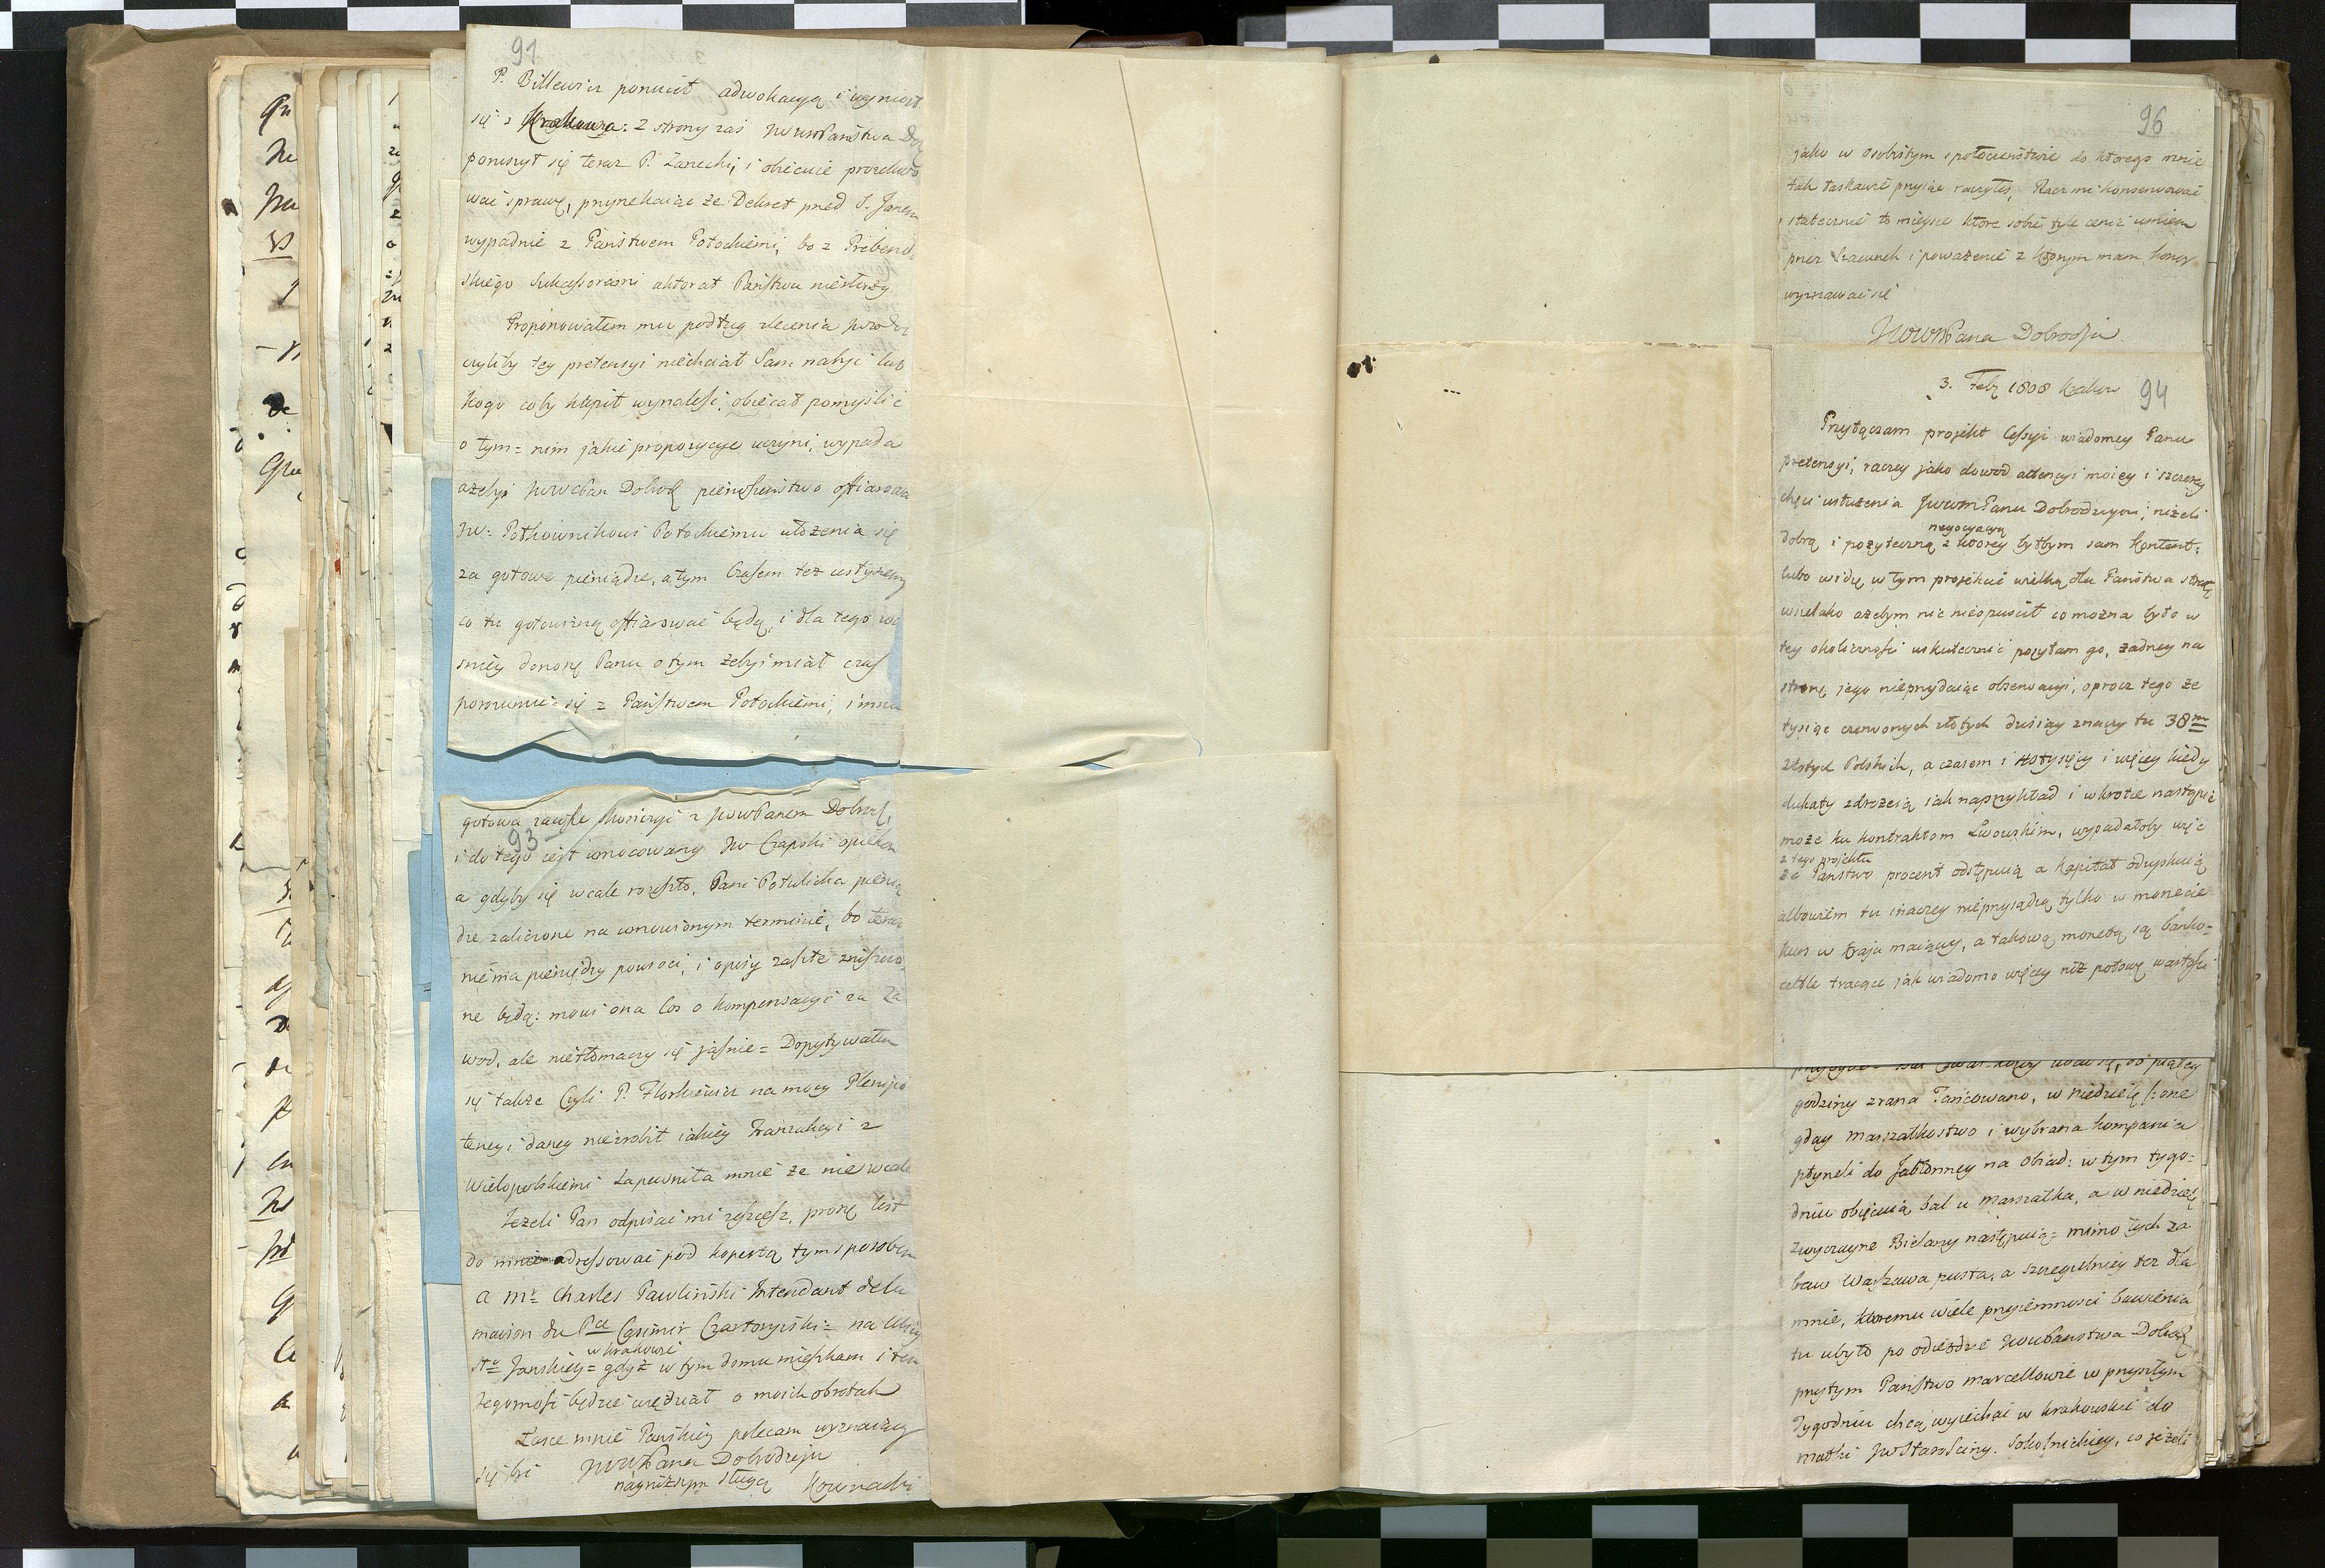 91
P. Billewicz porzucił adwokacyą i wyniosł
się z Krakowa: z strony zaś JWWPaństwa Do
poruszył się teraz P. Zarecki, i obiecuie prosekwo
wać sprawę, przyrzekaiąc że Dekret przed S. Janem
wypadnie z Państwem Potockiemi, bo z Prebend
skiego Sukcessorami aktorat Państwu niesłuży
Proponowałem mu podług zlecenia
czyliby tey pretensyi niechciał Sam nabyć lub
kogo coby kupił wynaleść, obiecał pomyślić
o tym = nim jakie propozycye uczyni, wypada
ażebyś JWWPan Dobrodz pierwszeństwo ofiarował
JW: Półkownikowi Potockiemu ułożenia się
za gotowe pieniądze, a tym Czasem też usłyszemy
co tu gotowizną ofiarować będą, i dla tego
sniey donoszę Panu o tym żebyś miał czas
porozumieć się z Państwem Potockiemi, i inne
93
gotowa zawsze skończyć z JWWPanem Dobrodz,
i do tego iest umocowany JW Czapski opiekun
a gdyby się wcale rozeszło, Pani Potulicka pienią
dze zaliczone na umowionym terminie, bo teraz
niema pieniędzy powroci, i opisy zaszłe zniszczo
ne będą: mowi ona cos o kompensacyi za Za
wod, ale nietłomaczy się jaśnie = Dopytywałem
się także Czyli P. Florkiewicz na mocy Plenipo
tencyi daney niezrobił iakiey Tranzakcyi z
Wielopolskiemi zapewniła mnie że nie wcale
Jeżeli Pan odpisać mi zechcesz, proszę list
do mnie adressować pod kopertą tym sposobem
a Mr Charles Pawliński Intendant de la
maison du Pce Casimir Czartoryiski = na Ulicy
w Krakowie
Sto Janskiey = gdyż w tym domu mieszkam i ten
Jegomość będzie wiedział o moich obrotach
Łasce mnie Pańskiey polecam wyznaiąc
się być JWWPana Dobrodzieja
nayniższym sługą
96
jako w osobistym społeczeństwie do ktorego mnie
tak łaskawie przyiąć raczyłeś, Racz mi konserwować
statecznie to mieysce ktore sobie tyle cenić umiem
przez szacunek i poważenie z ktorym mam honor
wyznawać się
JWWPana Dobrodzja
3. Feb 1808 Krakow 94
Przyłączam projekt Cessyi wiadomey Panu
pretensyi, raczey jako dowod attencyi moiey i szczerey
chęci usłużenia JWWPanu Dobrodzieiowi, niżeli
negocyacyą
dobrą i pożyteczną z ktorey byłbym sam kontent:
lubo widzę w tym projekcie wielką dla Państwa stratę
wszelako ażebym nic nieopuścił co można było w
tey okoliczności uskutecznić posyłam go, żadney na
stronę jego nieprzydaiąc obserwacyi, oprocz tego że
tysiąc czerwonych złotych dzisiay znaczy tu 38m
złotych Polskich, a czasem i 40 tysięcy i więcey kiedy
dukaty zdrożeią jak naprzykład i wkrotce nastąpić
może ku kontraktom Lwowskim, wypadałoby więc
z tego projektu
że Państwo procent odstępuią a kapitał odzyskuią
albowiem tu inaczey nieprzysądzą tylko w monecie
kurs w kraju maiącey, a takową monetą są banko-
cetle tracące jak wiadomo więcey niż połowę wartości
godziny zrana Tańcowano, w niedzielę
gday Marszałkostwo i wybrana kompania
płyneli do Jabłonney na Obiad: w tym tygo=
dniu obiecuią bal u Marszałka, a w niedzielę
zwyczayne Bielany następuią = mimo tych za
baw Warszawa pusta, a szczegulniey też dla
mnie, ktoremu wiele przyiemności bawienia
tu ubyło po odieździe JWWPaństwa Dobrodz
przytym Państwo Marcellowie w przyszłym
Tygodniu chcą wyiechać w krakowskie do
matki JWStarościny Sokolnickiey, co jeżeli